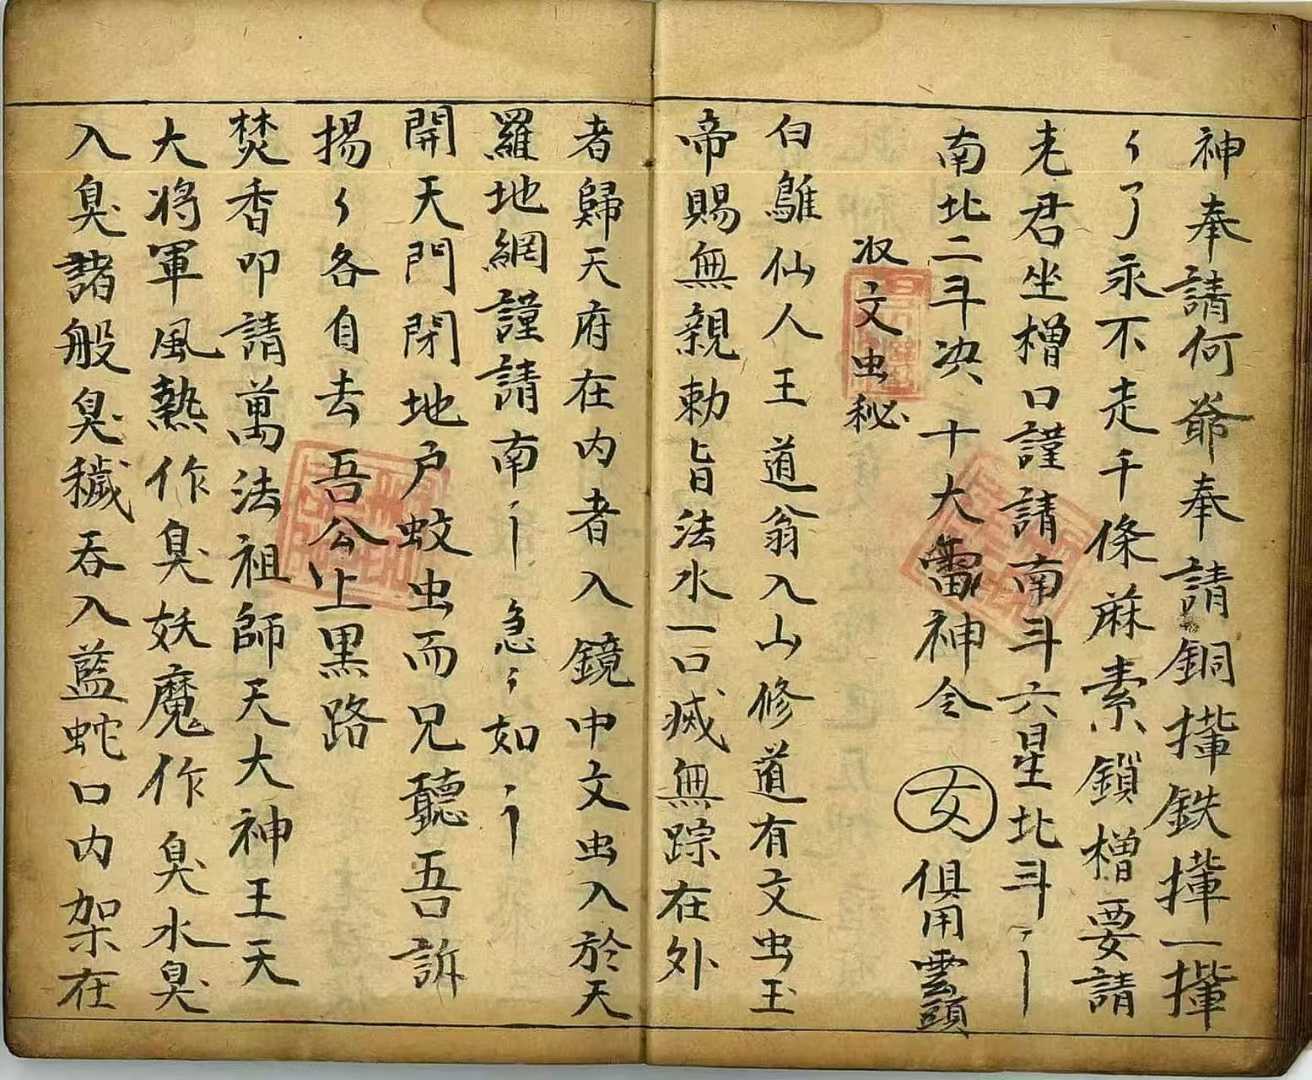 神奉請何爺奉請銅攆鉄攆一攆
々了永不走千條麻索鎖櫓要請
老君坐櫓口謹請南斗六星北斗
南北二斗决々十大雷神令 女 俱用雲頭
收文虫秘
白鶴仙人王道翁入山修道有文虫玉
帝賜無親勅旨法水一口滅無踪在外
者歸天府在内者入鏡中文虫入於天
羅地網謹請南 急々如
開天門閉地户蚊虫而兄聽吾訴
揚々各自去吾公上黒路
焚香叩請萬法祖師天大神王天
大将軍風熱作臭妖魔作臭水臭
入臭諸般臭穢吞入藍蛇口内架在